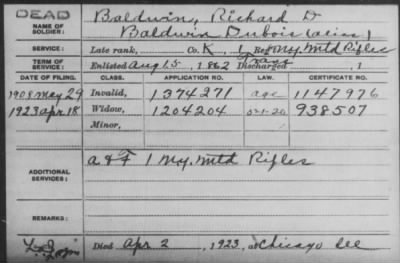 DEAD
NAME OF SOLDIER: Baldwin, Richard D
Baldwin Dubois (alias)
SERVICE: Late rank, Co. K, 1 Reg't Ny. Mtd Rifles
TERM OF SERVICE: Enlisted Aug 15, 1862 Discharged , 1
DATE OF FILING. CLASS. APPLICATION NO. LAW. CERTIFICATE NO.
1908 May 29 Invalid, 1374271 age 1147976
1923 Apr 18 Widow, 1204204 938507
Minor,
ADDITIONAL SERVICES: 1 Ny. Mtd Rifles
REMARKS:
Died Apr 2, 1923, at Chicago Ill